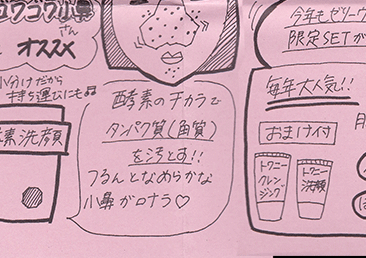 ユワユワ小鼻
さん
オススメ
小分けだから
持ち運びにも♫
素洗顔
酵素のチカラで
タンパク質(角質)
を汚とす!!
つるんとなめらかな
小鼻がロナラ♡
今年もゼリーウ
限定SETが
毎年大人気!!
おまけ付
トワニー
クレン
ジング
トワニー
洗顔